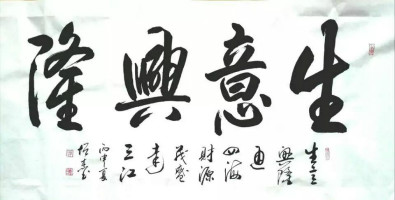 生意興隆
生意
興隆
通
四海
財源
茂盛
達
三江
丙申夏